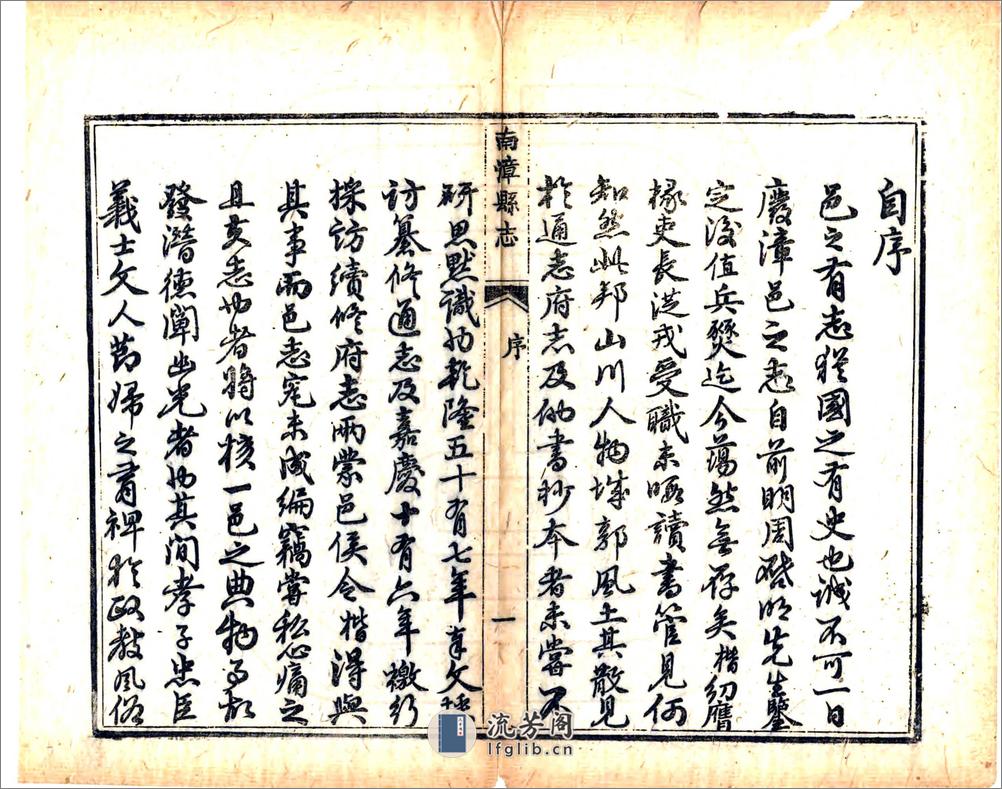 自序
邑之有志猶國之有史也誠不可一日
廢漳邑之志自前明周啓明先生鑒
定後值兵燹迄今蕩然無存矣楷幼膺
掾吏長從戎受職未暇讀書管見何
知然此邦山川人物城郭風土其散見
於通志府志及他書秒本者未嘗不
南漳縣志
序
一
研思默識也乾隆五十有七年奉文
訪纂修通志及嘉慶十有六年檄行
採訪續修府志兩蒙邑侯令楷得與
其事而邑志究未成編竊嘗私心痛之
且夫志也者將以核一邑之典物而
發潛德闡幽光者也其間孝子忠臣
義士文人節婦之有裨於政教風俗
流芳阁
lfglib.cn